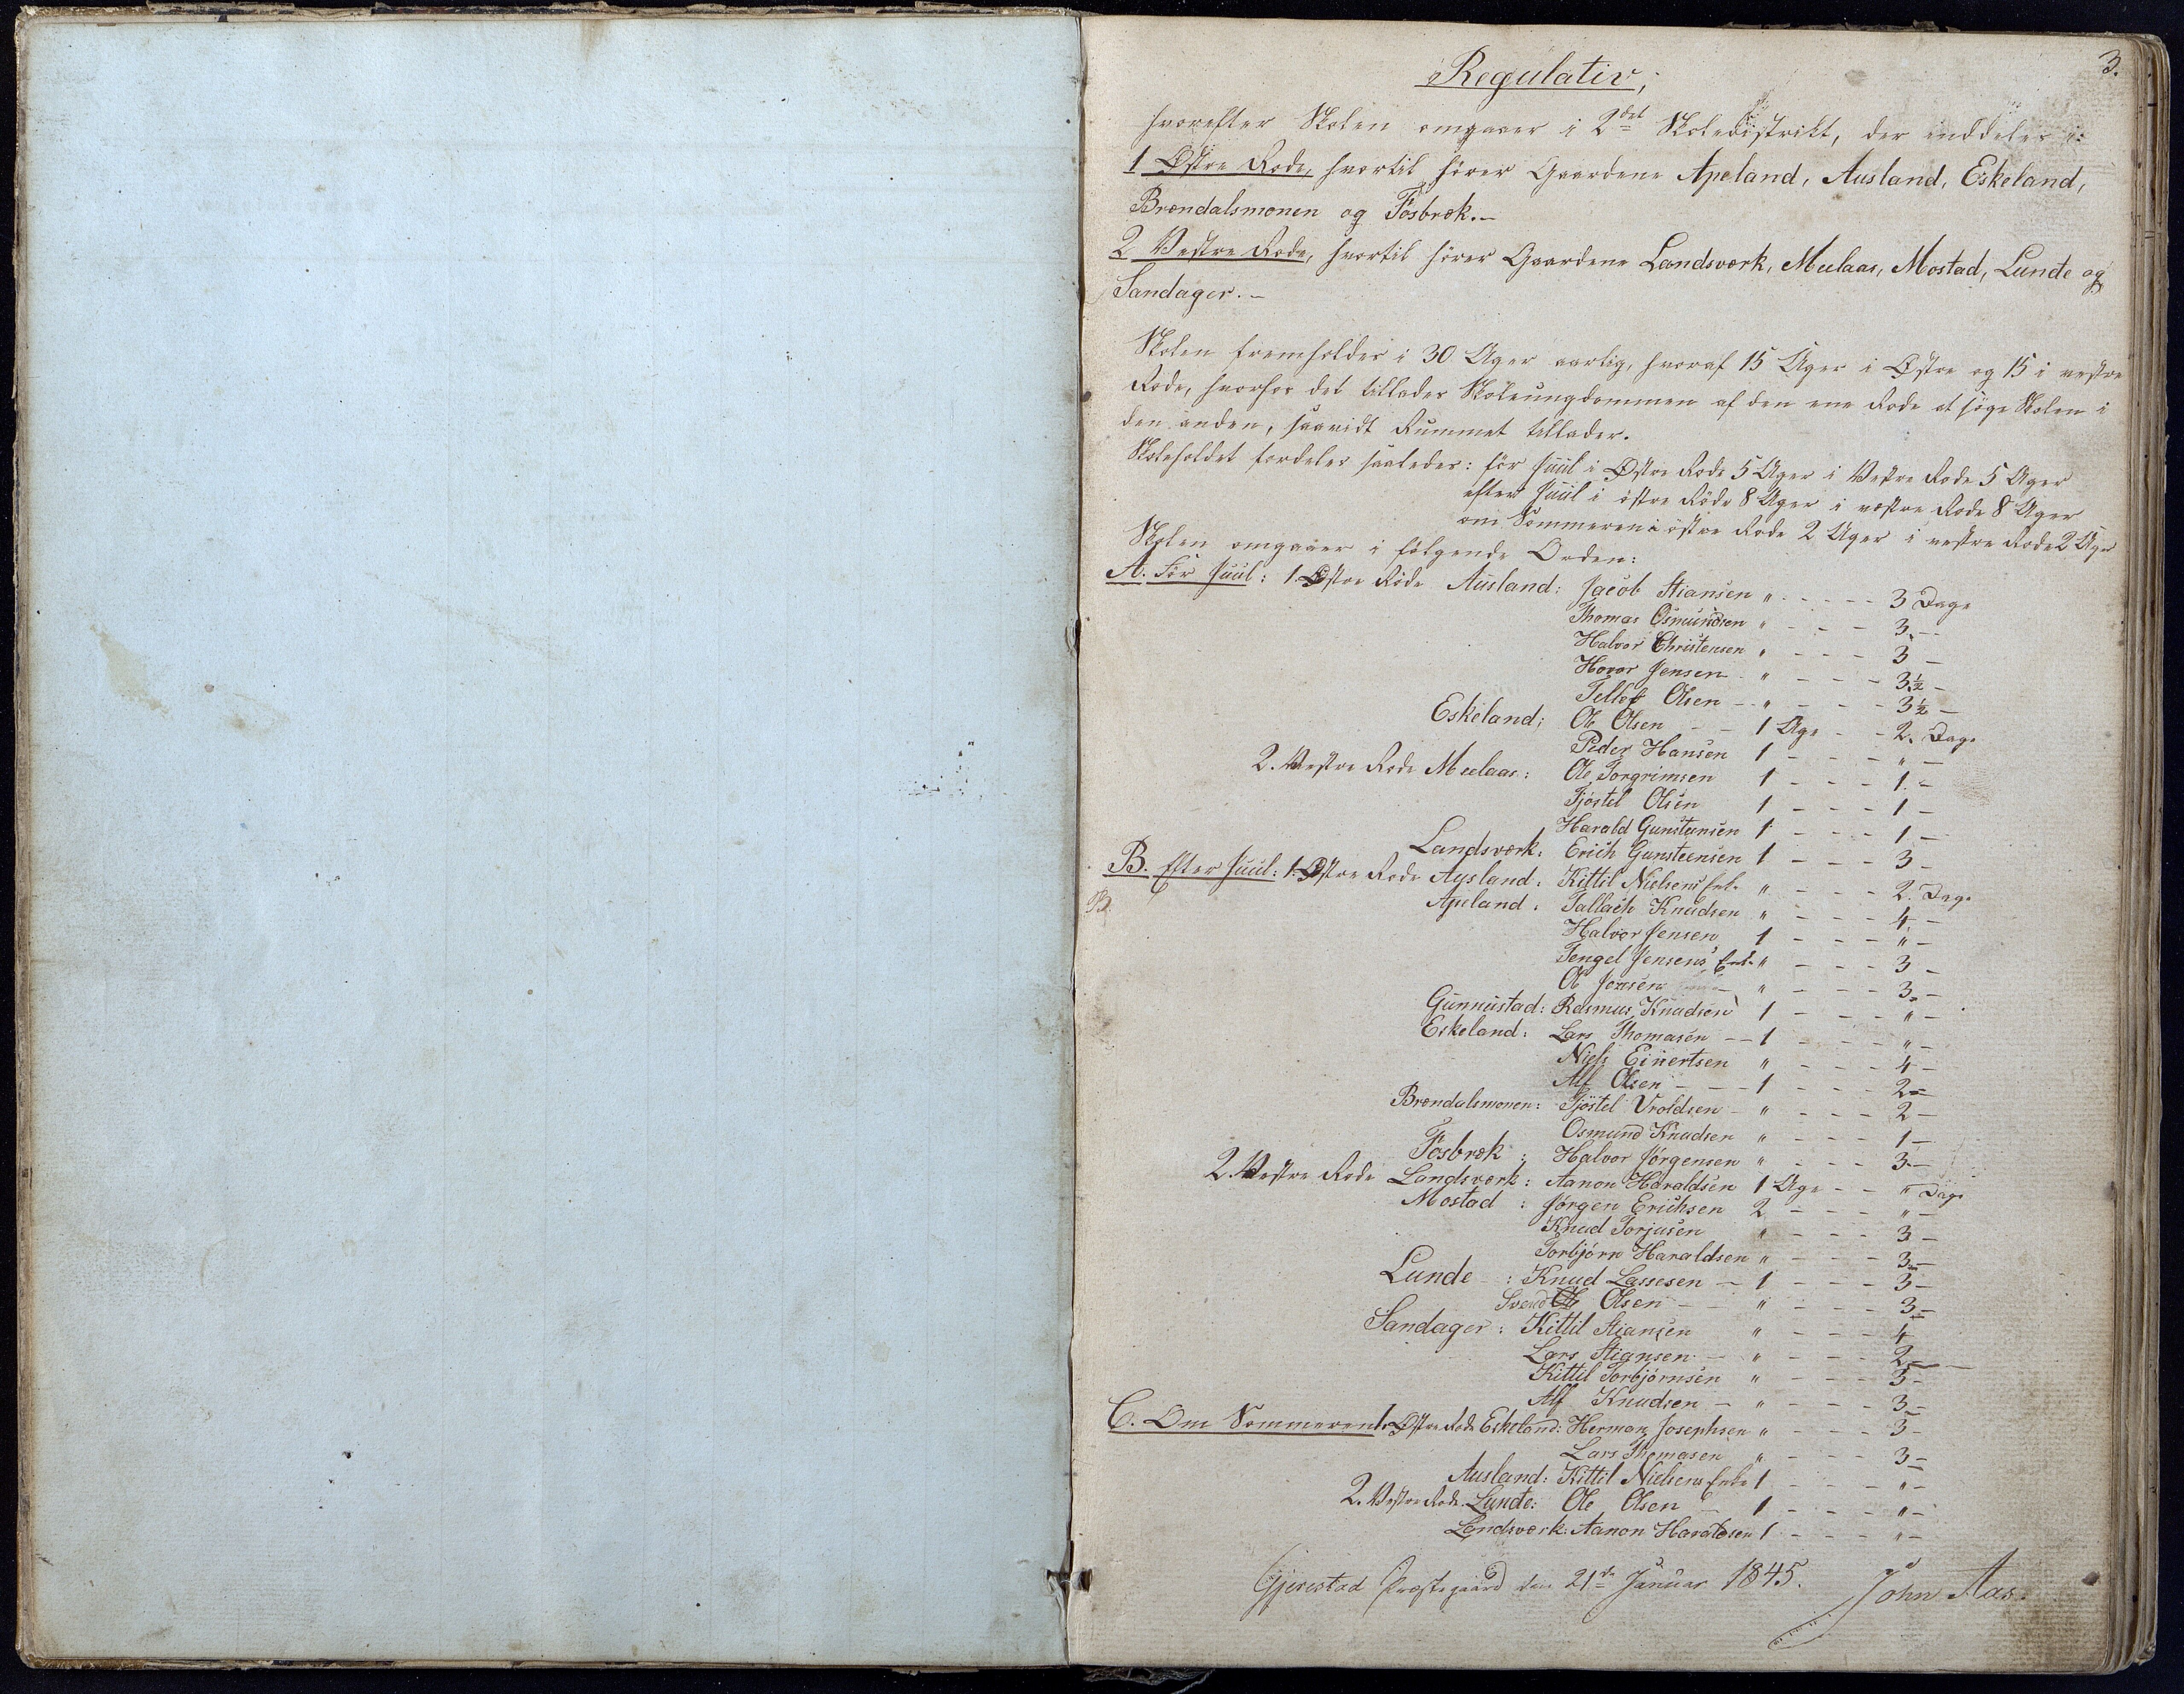 3.
Regulativ,
hvorefter Skolen omgaaer i 2det Skoledistrikt, der inddeles i:
1 Østre Rode, hvortil hører Gaardene Apeland, Ausland, Eskeland,
Brændalsmonen og Fosbræk.-
2 Vestre Rode, hvortil hører Gaardene Landsværk, Meelaas, Mostad, Lunde og
Sandager.-
Skolen fremholdes i 30 Uger aarlig, hvoraf 15 Uger i Østre og 15 i vestre
Rode, hvorhos det tillades Skoleungdommen af den ene Rode at søge Skolen i
den anden, saavidt Rummet tillader.
Skoleholdet fordeles saaledes: før Juul i Østre Rode 5 Uger i Vestre Rode 5 Uger
efter Juul i østre Rode 8 Uger i vestre Rode 8 Uger
om Sommeren i østre Rode 2 Uger i vestre Rode 2 Uger
Skolen omgaaer i følgende Orden:
A. Før Juul: 1. Østre Rode Ausland: Jacob Stiansen " - - - - 3 Dage
Thomas Osmundsen " - - - 3 -
Halvor Christensen " - - - 3 -
Hovor Jensen " - - - 3½ -
Tellef Olsen - " - - - 3½ -
Eskeland: Ole Olsen - - 1 Uge - - 2 Dage
Peder Hansen 1 - - - " -
2. Vestre Rode Meelaas: Ole Torgrimsen 1 - - - 1 -
Tjøstel Olsen 1 - - - 1 -
Harald Gunstensen 1 - - - 1 -
Landsværk: Erich Gunsteensen 1 - - - 3 -
B. Efter Juul: 1. Østre Rode Ausland: Kittil Nielsens Enke " - - - 2 Dage
B
Apeland: Tallach Knudsen " - - - 4 -
Halvor Jensen 1 - - - " -
Tengel Jensens Enke " - - - 3 -
Ole Jensen " - - - 3 -
Gunnustad: Rasmus Knudsen 1 - - - " -
Eskeland: Lars Thomasen - - 1 - - - " -
Niels Einertsen " - - - 4 -
Alf Olsen - - - 1 - - - 2 -
Brændalsmonen: Tjøstel Vroldsen - " - - - 2 -
Osmund Knudsen " - - - 1 -
Fosbræk: Halvor Jørgensen " - - - 3 -
2. Vestre Rode Landsværk: Aanon Haraldsen 1 Uge - - " Dage
Mostad: Jørgen Erichsen 2 - - - " -
Knud Torjusen " - - - 3 -
Torbjørn Haraldsen " - - - 3 -
Lunde: Knud Lassesen - 1 - - - 3 -
Svend Ole Olsen - - " - - - 3 -
Sandager: Kittil Stiansen " - - - 4 -
Lars Stiansen - " - - - 2 -
Kittil Torbjørnsen " - - - 3 -
Alf Knudsen - " - - - 3 -
C. Om Sommeren 1. Østre Rode Eskeland: Herman Josephsen " - - - 3 -
Lars Thomasen " - - - 3 -
Ausland: Kittil Nielsens Enke 1 - - - " -
2. Vestre Rode Lunde: Ole Olsen - 1 - - - " -
Landsværk: Aanon Haraldsen 1 - - - " -
Gjerestad Præstegaard den 21de Januar 1845. John Aas.